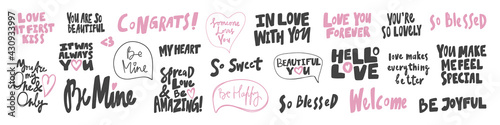 LOVE
AT FIRST
KISS
YOU ARE SO
BEAUTIFUL
CONGRATS!
Someone
Loves
You
IN LOVE
WITH YOU
LOVE YOU
FOREVER
YOU'RE
SO LOVELY
SO BLESSED
You're
My
One &
Only
IT WAS
ALWAYS
YOU
Be
Mine
MY HEART
SPREAD
LOVE &
BE
AMAZING!
So Sweet
BEAUTIFUL
YOU
HELLO
LOVE
love makes
everything
better
YOU MAKE
ME FEEL
SPECIAL
Be Mine
Be Happy
SO BLESSED
Welcome
BE JOYFUL
Adobe Stock | #430933997